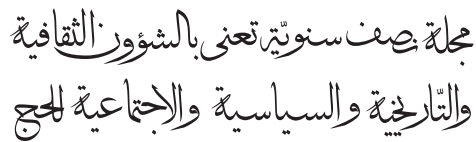 مجلة نصف سنويّة تعنى بالشؤون الثقافية
والتّاريخية والسياسية والاجتماعية للحج